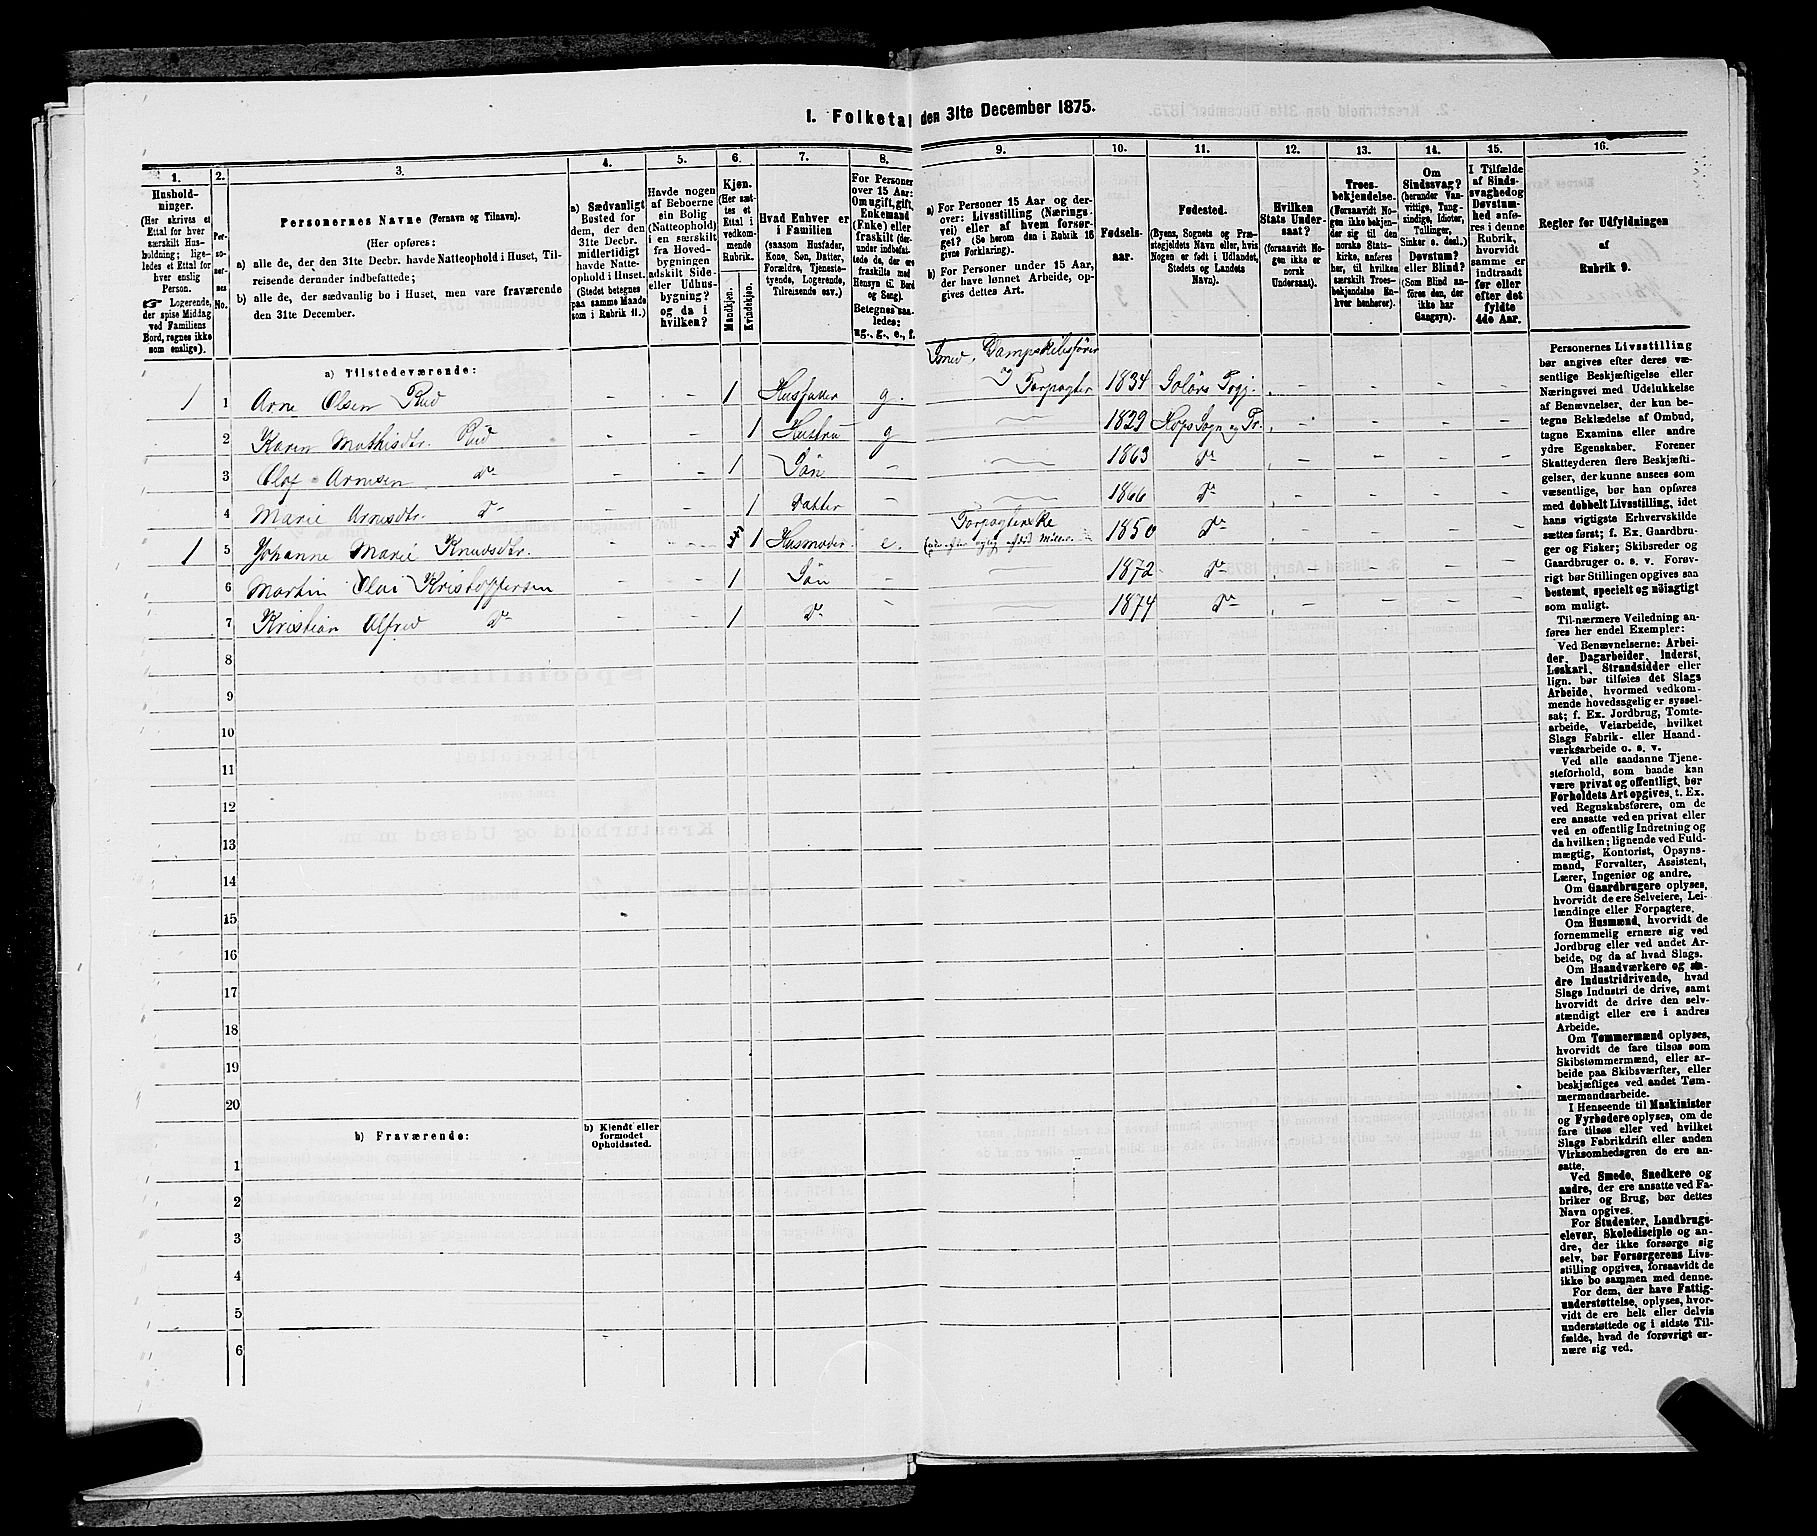 I. Folketal den 31te December 1875.
1. 2. 3. 4. 5. 6. 7. 8. 9. 10. 11. 12. 13. 14. 15. 16.
Husholdninger.
(Her skrives et
Ettal for hver
særskilt Husholdning;
ligeledes et Ettal for
hver enslig
Person.
☞ Logerende,
der spise Middag
ved Familiens
Bord, regnes ikke
som enslige).
Personernes No.
Personernes Navne (Fornavn og Tilnavn).
(Her opføres:
a) alle de, der den 31te Decbr. havde Natteophold i Huset, Tilreisende
derunder indbefattede;
b) alle de, der sædvanlig bo i Huset, men vare fraværende
den 31te December.
a) Sædvanligt
Bosted for
dem, der den
31te Decbr.
midlertidigt
havde Natteophold
i Huset.
(Stedet betegnes
paa samme Maade
som i Rubrik 11.)
Havde nogen
af Beboerne
sin Bolig
(Natteophold)
i en særskilt
fra Hovedbygningen
adskilt Side-
eller Udhusbygning?
og da i
hvilken?
Kjøn.
(Her sættes
et
Ettal i
vedkommende
Rubrik.
Mandkjøn.
Kvindekjøn.
Hvad Enhver er
i Familien
(saasom Husfader,
Kone, Søn, Datter,
Forældre, Tjenestetyende,
Logerende,
Tilreisende osv.)
For Personer
over 15 Aar:
Om ugift, gift,
Enkemand
(Enke) eller
fraskilt (derunder
indbefattede
de, der ere
fraskilte med
Hensyn til Bord
og Seng).
Betegnes saaledes:
ug., g., e., f.
a) For Personer 15 Aar og derover:
Livsstilling (Næringsvei)
eller af hvem forsørget?
(Se herom den i Rubrik 16
givne Forklaring).
b) For Personer under 15 Aar,
der have lønnet Arbeide, opgives
dettes Art.
Fødselsaar.
Fødested.
(Byens, Sognets og Præstegjeldets
Navn eller, hvis
Nogen er født i Udlandet,
Stedets og Landets
Navn).
Hvilken
Stats Undersaat?
(forsaavidt Nogen
ikke er
norsk
Undersaat).
Troesbekjendelse.
(Forsaavidt Nogen
ikke bekjender
sig til den
norske Statskirke,
anføres
her, til hvilken
særskilt Troesbekjendelse
Enhver
henhører).
Om
Sindssvag?
(herunder Vanvittige,
Tungsindige,
Idioter,
Tullinger,
Sinker o. desl.)
Døvstum?
eller Blind?
(Som Blind anføres
den, der
ikke har
Gangsyn).
I Tilfælde
af Sindssvaghed
og
Døvstumhed
anføres
i denne
Rubrik,
hvorvidt
samme er
indtraadt
før eller
efter det
fyldte
4de Aar.
Regler for Udfyldningen
af
Rubrik 9.
a) Tilstedeværende:
Smed, Dampskibsfører
1 1 Arne Olsen Rud - - 1 Husfader g. Forpagter 1834 Solørs Prgj. - - - -
2 Karen Mathisdtr. Rud - - 1 Hustru g 1829 Hofs Sogn og Pr. - - - -
3 Olof Arnesen do - - 1 Søn - 1863 do - - - -
4 Marie Arnesdtr. do - - 1 Datter - 1866 do - - - -
1 5 Johanne Marie Knudsdtr. - - 1 Husmoder e. Forpagterske 1850 do - - - -
6 Martin Olai Kristoffersen - - 1 Søn - 1872 do - - - -
7 Kristian Alfred do - - 1 do - 1874 do - - - -
8
9
10
11
12
13
14
15
16
17
18
19
20
b) Fraværende:
b) Kjendt eller
formodet
Opholdssted.
1
2
3
4
5
6
Personernes Livsstilling
bør angives efter deres væsentlige
Beskjæftigelse eller
Næringsvei med Udelukkelse
af Benævnelser, der kun betegne
Beklædelse af Ombud,
tagne Examina eller andre
ydre Egenskaber. Forener
Skatteyderen flere Beskjæftigelser,
der kunne ansees som
væsentlige, bør han opføres
med dobbelt Livsstilling, idet
hans vigtigste Erhvervskilde
sættes først; f. Ex. Gaardbruger
og Fisker; Skibsreder og
Gaardbruger o. s. v. Forøvrigt
bør Stillingen opgives saa
bestemt, specielt og nøiagtigt
som muligt.
Til nærmere Veiledning anføres
her endel Exempler:
Ved Benævnelserne: Arbeider,
Dagarbeider, Inderst,
Løskarl, Strandsidder eller
lign. bør tilføies det Slags
Arbeide, hvormed vedkommende
hovedsagelig er sysselsat;
f. Ex. Jordbrug, Tomtearbeide,
Veiarbeide, hvilket
Slags Fabrik- eller Haandværksarbeide
o. s. v.
Ved alle saadanne Tjenesteforhold,
som baade kan
være privat og offentligt, bør
Forholdets Art opgives, t. Ex.
ved Regnskabsførere, om de
ere ansatte ved en privat eller
ved en offentlig Indretning og
da hvilken; lignende ved Fuldmægtig,
Kontorist, Opsynsmand,
Forvalter, Assistent,
Lærer, Ingeniør og andre.
Om Gaardbrugere oplyses,
hvorvidt de ere Selveiere, Leilændinge
eller Forpagtere.
Om Husmænd, hvorvidt de
fornemmelig ernære sig ved
Jordbrug eller ved andet Arbeide,
og da af hvad Slags.
Om Haandværkere og andre
Industridrivende, hvad
Slags Industri de drive, samt
hvorvidt de drive den selvstændigt
eller ere i andres
Arbeide.
Om Tømmermænd oplyses,
hvorvidt de fare tilsøs som
Skibstømmermænd, eller arbeide
paa Skibsværfter, eller
beskjæftiges ved andet Tømmermandsarbeide.
I Henseende til Maskinister
og Fyrbødere oplyses, om de
fare tilsøs eller ved hvilket
Slags Fabrikdrift eller anden
Virksomhedsgren de ere ansatte.
Ved Smede, Snedkere og
andre, der ere ansatte ved Fabriker
og Brug, bør dettes
Navn opgives.
For Studenter, Landbrugselever,
Skoledisciple og andre,
der ikke forsørge sig
selv, bør Forsørgerens Livsstilling
opgives, forsaavidt de
ikke bo sammen med denne.
For dem, der have Fattigunderstøttelse,
oplyses, hvorvidt
de ere helt eller delvis
understøttede og i sidste Tilfælde,
hvad de forøvrigt ernære
sig ved.